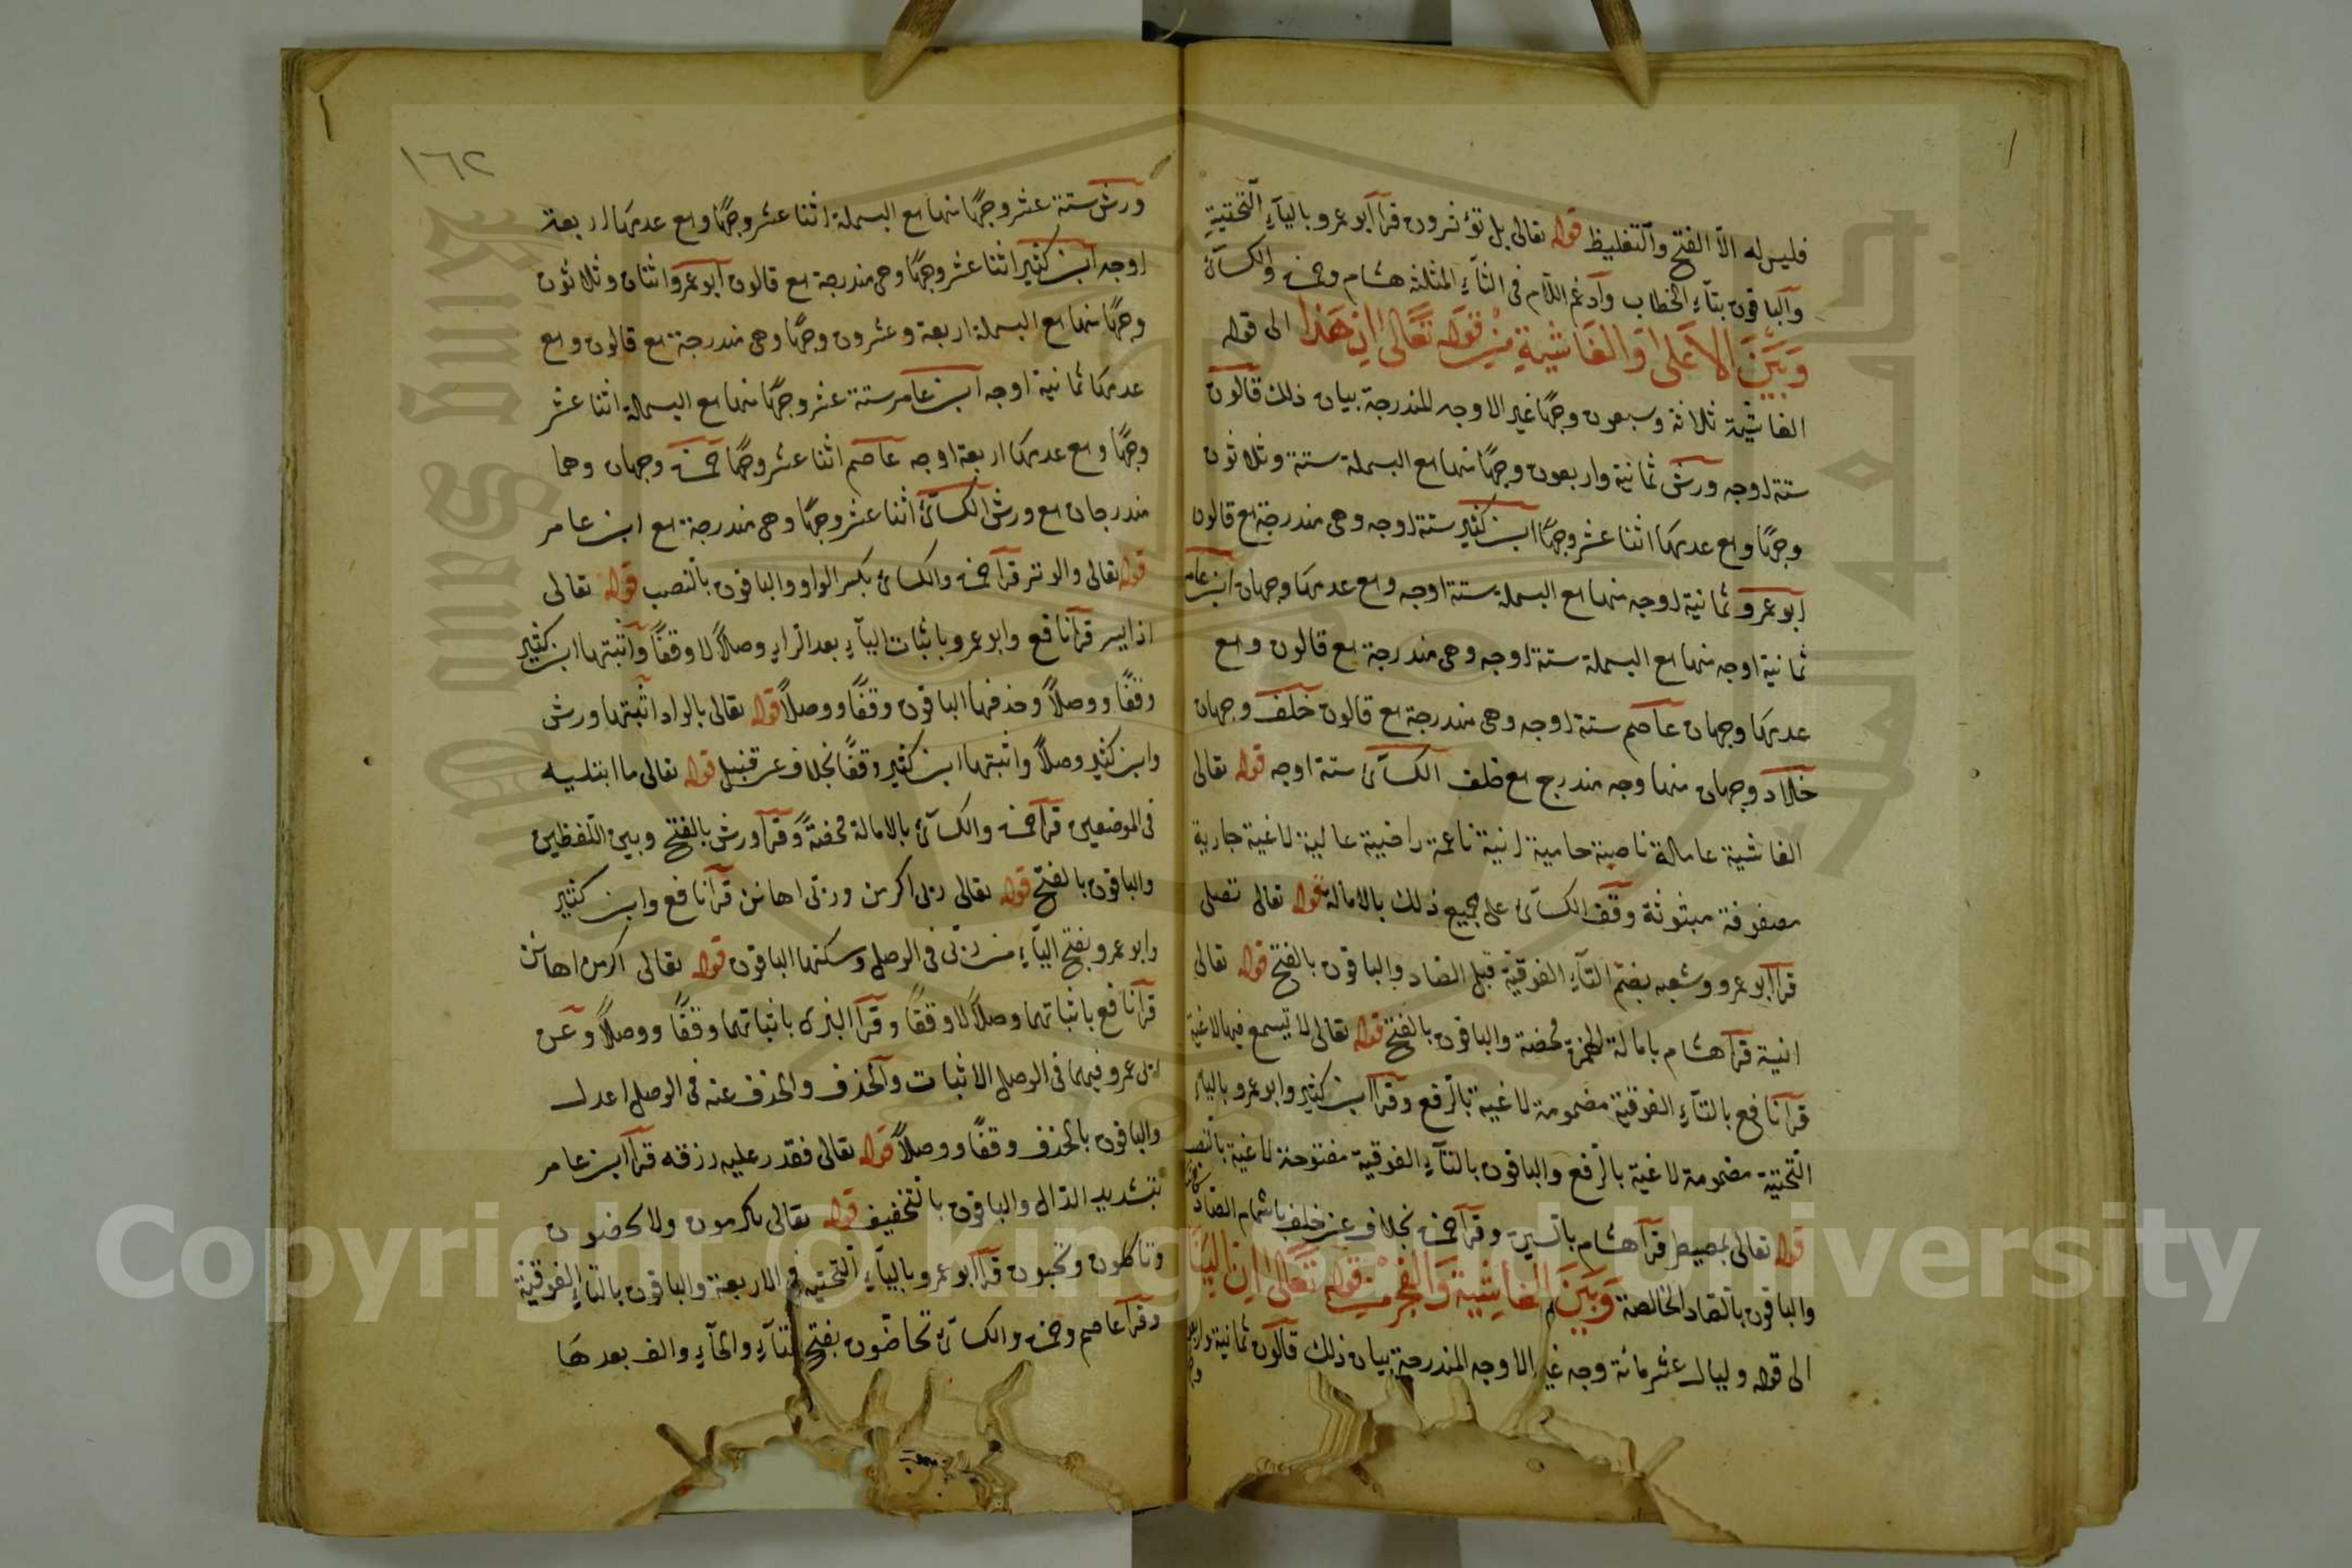 فليس له الا الفتح والتغليظ قوله تعالى بل تؤثرون قرأ ابو عمرو بالياء التحتية
والباقون بتاء الخطاب وادغم اللام فى الثاء المثلثة هشام وحمزة والكسائى
وبين الاعلى والغاشية من قوله تعالى ان هذا الى قوله
الغاشية ثلاثة وسبعون وجها غير الاوجه المندرجة بيان ذلك قالون
ستة اوجه ورش ثمانية واربعون وجها منها مع البسملة ستة وثلاثون
وجها ومع عدمها اثنا عشر وجها ابن كثير ستة اوجه وهى مندرجة مع قالون
ابو عمرو ثمانية اوجه منها مع البسملة ستة اوجه ومع عدمها وجهان ابن عامر
ثمانية اوجه منها مع البسملة ستة اوجه وهى مندرجة مع قالون ومع
عدمها وجهان عاصم ستة اوجه وهى مندرجة مع قالون خلف وجهان
خلاد وجهان منها وجه مندرج مع خلف الكسائى ستة اوجه قوله تعالى
الغاشية عاملة ناصبة حامية انية ناعمة راضية عالية لاغية جارية
مصفوفة مبثوثة وقف الكسائى على جميع ذلك بالامالة قوله تعالى تصلى
قرأ ابو عمرو وشعبه بضم التاء الفوقية قبل الصاد والباقون بالفتح قوله تعالى
انية قرأ هشام بامالة الهمزة محضة والباقون بالفتح قوله تعالى لا تسمع فيها لاغية
قرأ نافع بالتاء الفوقية مضمومة لاغية بالرفع وقرأ ابن كثير وابو عمرو بالياء
التحتية مضمومة لاغية بالرفع والباقون بالتاء الفوقية مفتوحة لاغية بالنصب
قوله تعالى بمصيطر قرأ هشام بالسين وقرأ حمزة بخلاف عن خلاد باشمام الصاد
والباقون بالصاد الخالصة وبين الغاشية والفجر من قوله تعالى ان الينا
الى قوله وليال عشر مائة وجه غير الاوجه المندرجة بيان ذلك قالون ثمانية واربعون
١٦٢
ورش ستة عشر وجها منها مع البسملة اثنا عشر وجها ومع عدمها اربعة
اوجه ابن كثير اثنا عشر وجها وهى مندرجة مع قالون ابو عمرو اثنان وثلاثون
وجها منها مع البسملة اربعة وعشرون وجها وهى مندرجة مع قالون ومع
عدمها ثمانية اوجه ابن عامر ستة عشر وجها منها مع البسملة اثنا عشر
وجها ومع عدمها اربعة اوجه عاصم اثنا عشر وجها حمزة وجهان وهما
مندرجان مع ورش الكسائى اثنا عشر وجها وهى مندرجة مع ابن عامر
قوله تعالى والوتر قرأ حمزة والكسائى بكسر الواو والباقون بالنصب قوله تعالى
اذا يسر قرأ نافع وابو عمرو باثبات الياء بعد الراء وصلا لا وقفا واثبتها ابن كثير
وقفا ووصلا وحذفها الباقون وقفا ووصلا قوله تعالى بالواد اثبتها ورش
وابن كثير وصلا واثبتها ابن كثير وقفا بخلاف عن قنبل قوله تعالى ما ابتليه
فى الموضعين قرأ حمزة والكسائى بالامالة محضة وقرأ ورش بالفتح وبين اللفظين
والباقون بالفتح قوله تعالى ربى اكرمن وربى اهانن قرأ نافع وابن كثير
وابو عمرو بفتح الياء من ربى فى الوصل وسكنها الباقون قوله تعالى اكرمن اهانن
قرأ نافع باثباتهما وصلا لا وقفا وقرأ البزى باثباتهما وقفا ووصلا وعن
ابى عمرو فيهما فى الوصل الاثبات والحذف والحذف عنه فى الوصل اعدل
والباقون بالحذف وقفا ووصلا قوله تعالى فقدر عليه رزقه قرأ ابن عامر
بتشديد الدال والباقون بالتخفيف قوله تعالى يكرمون ولا يحضون
وتاكلون وتحبون قرأ ابو عمرو بالياء التحتية فى الاربعة والباقون بالتاء الفوقية
وقرأ عاصم وحمزة والكسائى تحاضون بفتح التاء والحاء والف بعدها
Copyright © King Saud University